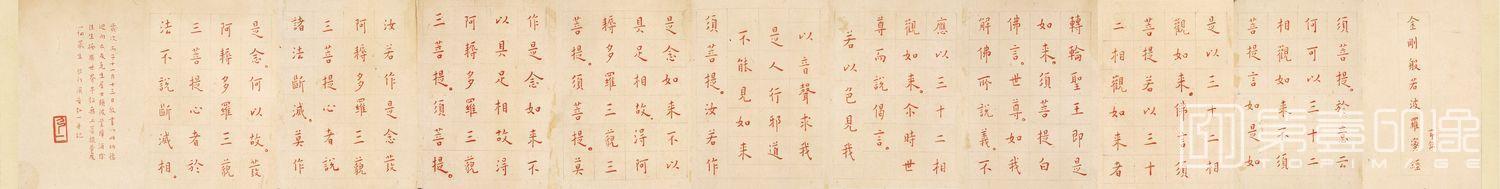 金剛般若波羅蜜經
須菩提。於意云
何可以三十二
相觀如來不須
菩提言如是如
是以三十二相
觀如來。佛言須
菩提若以三十
二相觀如來者
轉輪聖王即是
如來。須菩提白
佛言。世尊。如我
解佛所說義。不
應以三十二相
觀如來。尒時世
尊而說偈言。
若以色見我
以音聲求我
是人行邪道
不能見如來
須菩提。汝若作
是念如來不以
具足相故得阿
耨多羅三藐三
菩提。須菩提莫
作是念如來不
以具足相故得
阿耨多羅三藐
三菩提。須菩提。
汝若作是念發
阿耨多羅三藐
三菩提心者說
諸法斷滅。莫作
是念。何以故。發
阿耨多羅三藐
三菩提心者於
法不說斷滅相。
歲次丙子十一月十三日敬書
TOPIMAGE